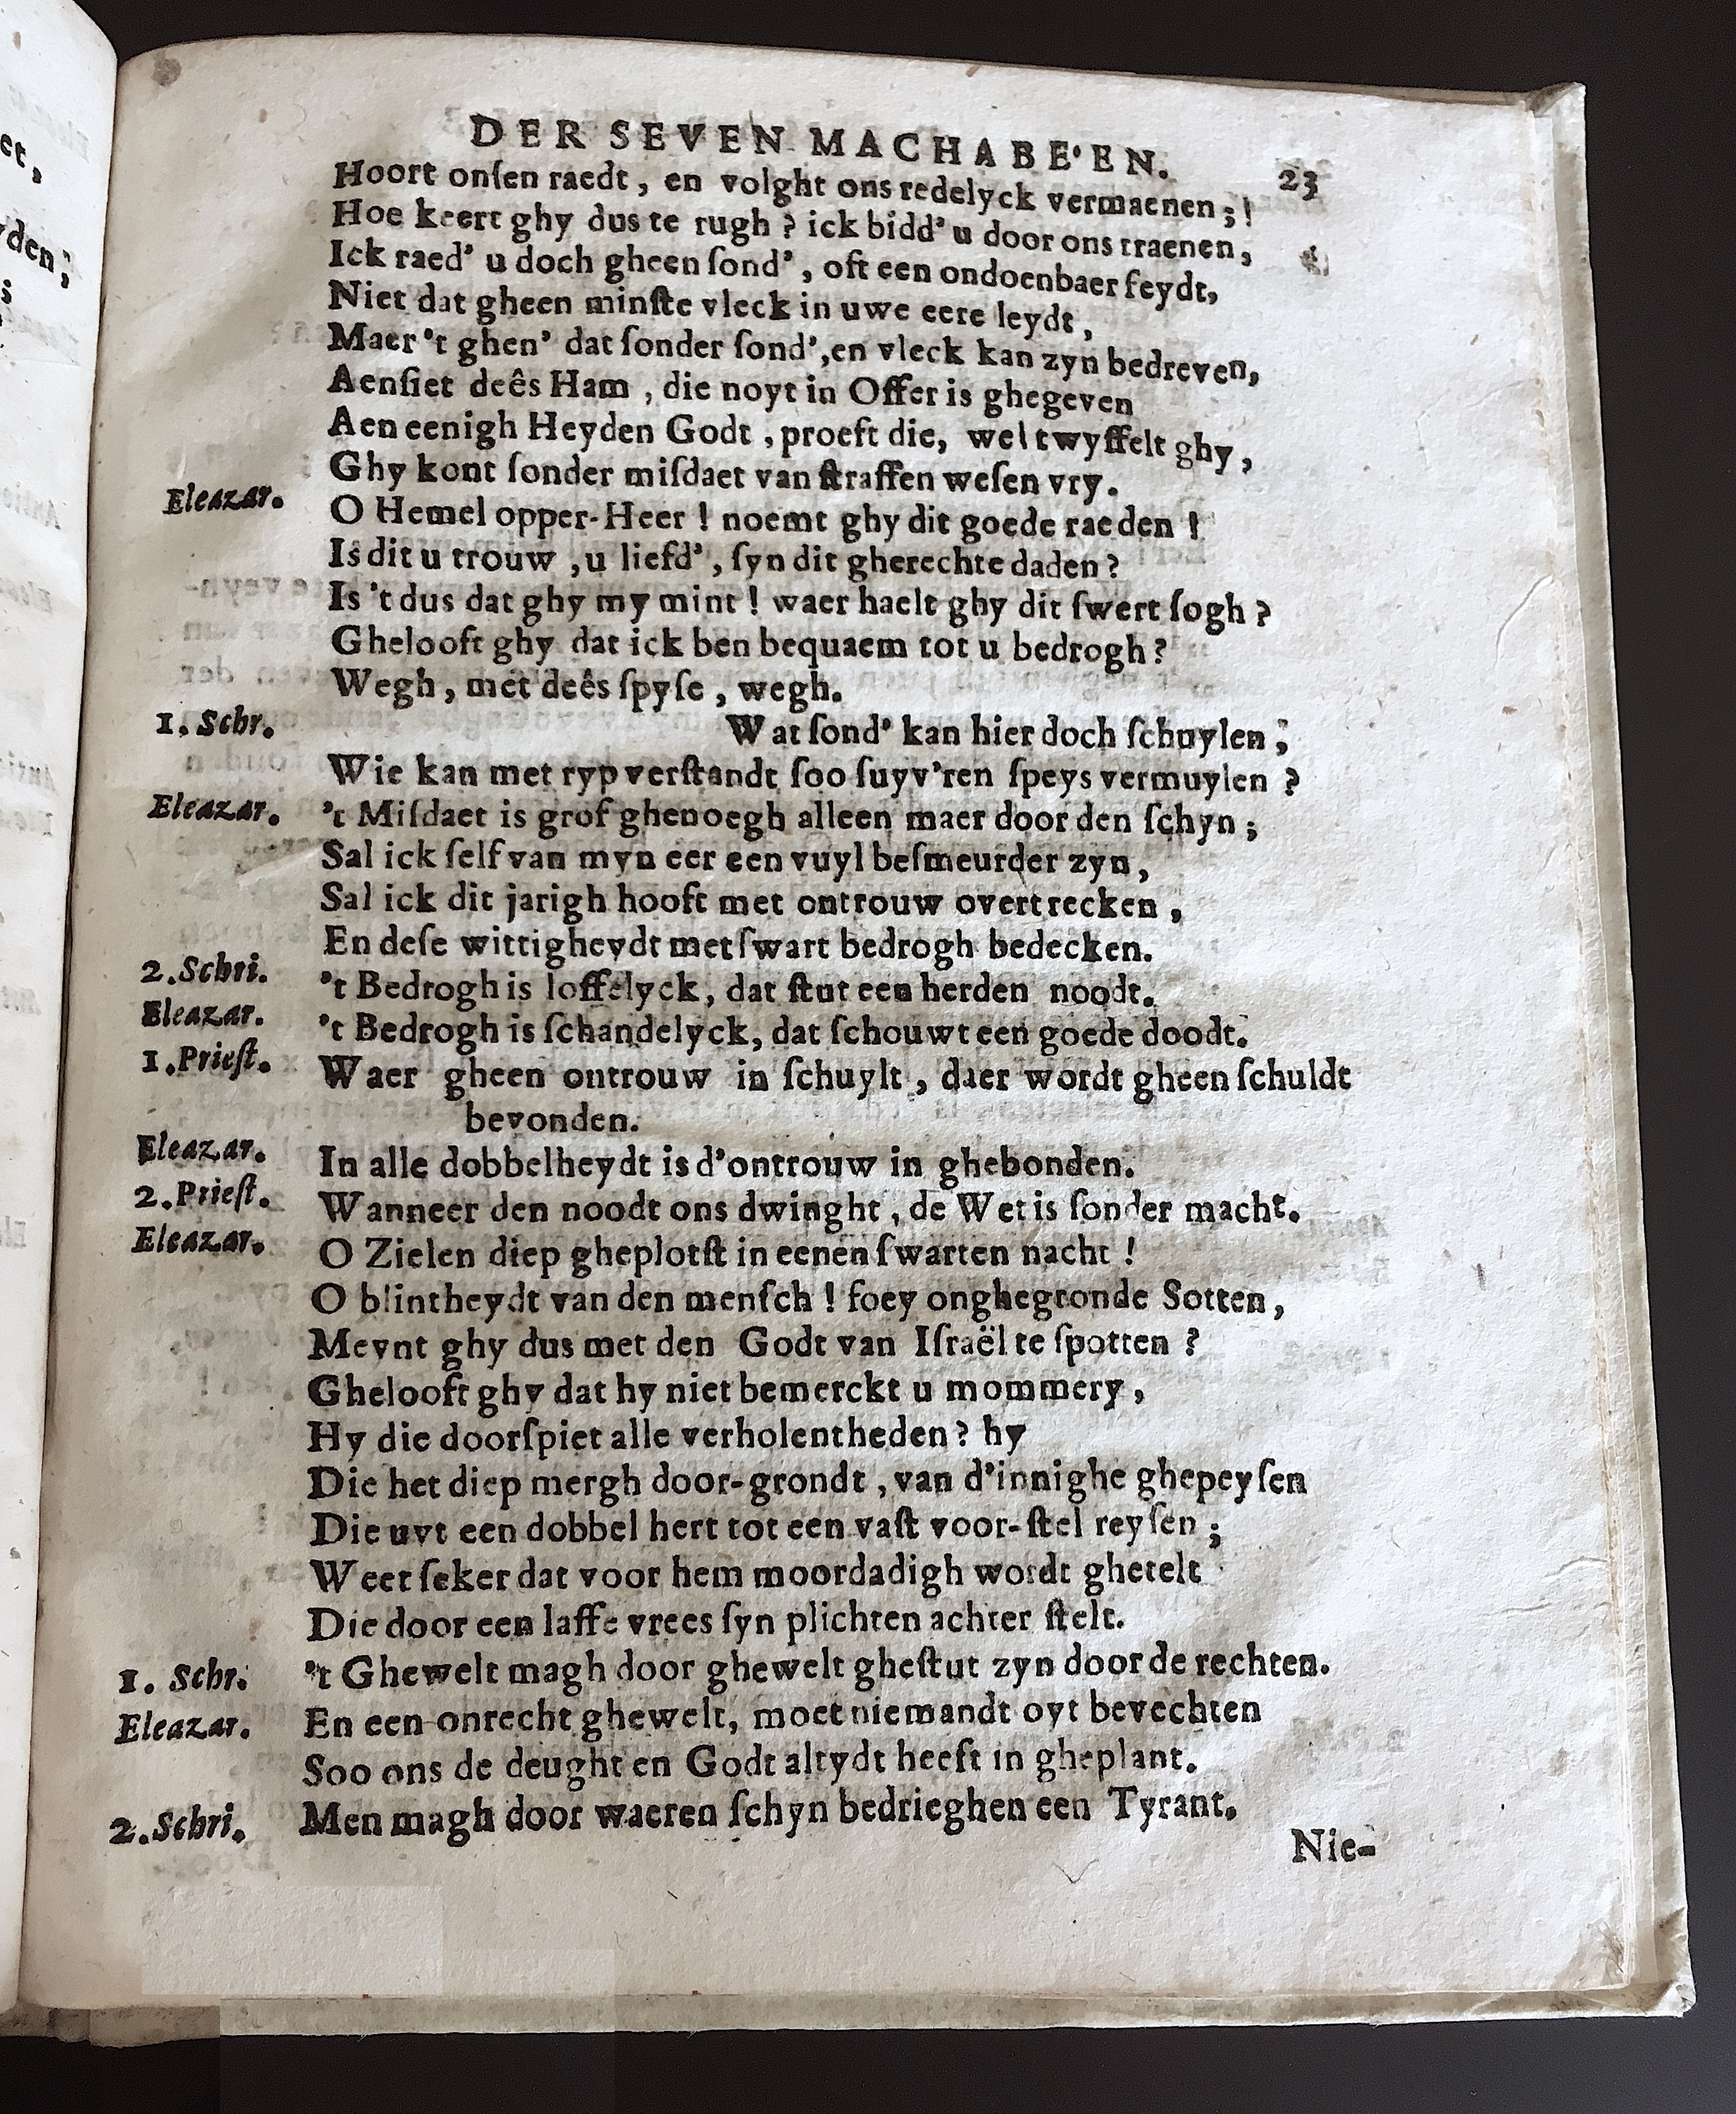 DER SEVEN MACHABE'EN. 23
Hoort onſen raedt, en volght ons redelyck vermaenen;!
Hoe keert ghy dus te rugh? ick bidd' u door ons traenen,
Ick raed' u doch gheen ſond', oft een ondoenbaer feydt,
Niet dat gheen minſte vleck in uwe eere leydt,
Maer 't ghen' dat ſonder ſond', en vleck kan zyn bedreven,
Aenſiet deês Ham, die noyt in Offer is ghegeven
Aen eenigh Heyden Godt, proeft die, wel twyffelt ghy,
Ghy kont ſonder miſdaet van ſtraffen weſen vry.
Eleazar. O Hemel opper-Heer! noemt ghy dit goede raeden!
Is dit u trouw, u liefd', ſyn dit gherechte daden?
Is 't dus dat ghy my mint! waer haelt ghy dit ſwert ſogh?
Ghelooft ghy dat ick ben bequaem tot u bedrogh?
Wegh, met deês ſpyſe, wegh.
1. Schr. Wat ſond' kan hier doch ſchuylen;
Wie kan met ryp verſtandt ſoo ſuyv'ren ſpeys vermuylen?
Eleazar. 't Miſdaet is grof ghenoegh alleen maer door den ſchyn;
Sal ick ſelf van myn eer een vuyl beſmeurder zyn,
Sal ick dit jarigh hooft met ontrouw overtrecken,
En deſe wittigheydt met ſwart bedrogh bedecken.
2. Schri. 't Bedrogh is loffelyck, dat ſtut een herden noodt.
Eleazar. 't Bedrogh is ſchandelyck, dat ſchouwt een goede doodt.
1. Prieſt. Waer gheen ontrouw in ſchuylt, daer wordt gheen ſchuldt
bevonden.
Eleazar. In alle dobbelheydt is d'ontrouw in ghebonden.
2. Prieſt. Wanneer den noodt ons dwinght, de Wet is ſonder macht.
Eleazar. O Zielen diep gheplotſt in eenen ſwarten nacht!
O blintheydt van den menſch! foey onghegronde Sotten,
Meynt ghy dus met den Godt van Iſraël te ſpotten?
Ghelooft ghy dat hy niet bemerckt u mommery,
Hy die doorſpiet alle verholentheden? hy
Die het diep mergh door-grondt, van d'innighe ghepeyſen
Die uyt een dobbel hert tot een vaſt voor-ſtel reyſen;
Weet ſeker dat voor hem moordadigh wordt ghetelt
Die door een laffe vrees ſyn plichten achter ſtelt.
1. Schr. 't Ghewelt magh door ghewelt gheſtut zyn door de rechten.
Eleazar. En een onrecht ghewelt, moet niemandt oyt bevechten
Soo ons de deught en Godt altydt heeft in gheplant.
2. Schri. Men magh door waeren ſchyn bedrieghen een Tyrant.
Nie-